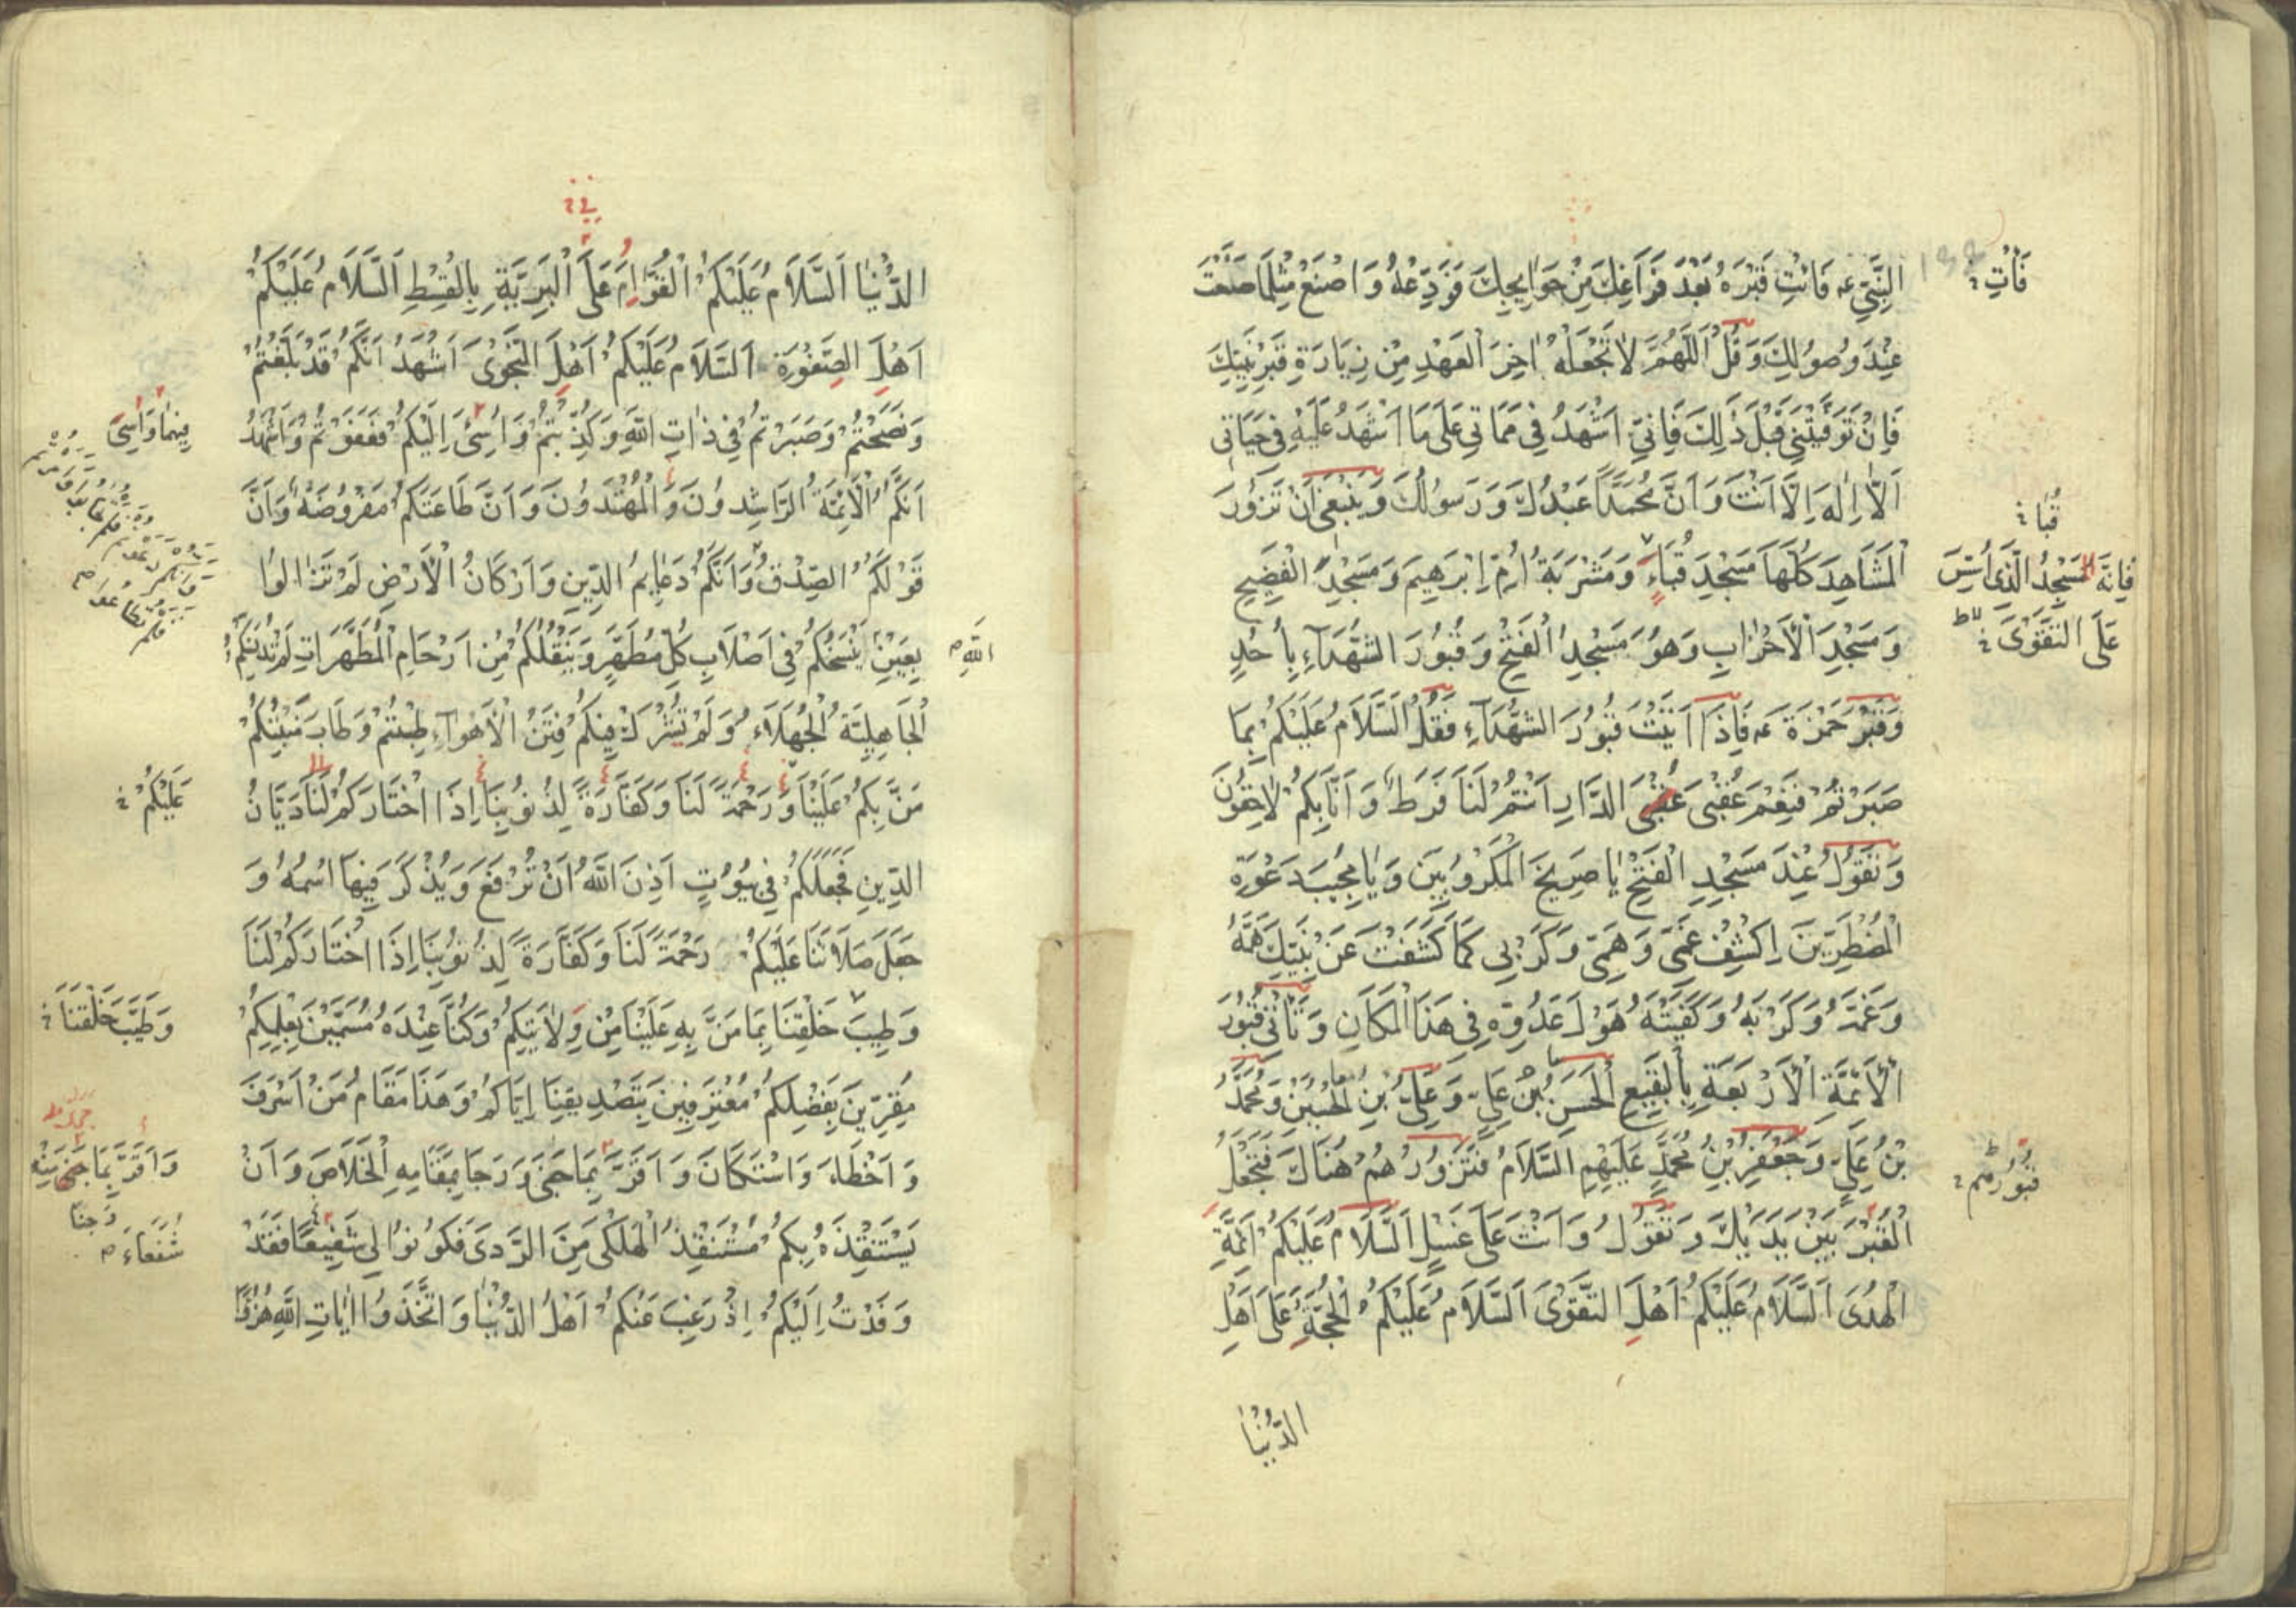 النَّبِيِّ عه فَائْتِ قَبْرَهُ بَعْدَ فَرَاغِكَ مِنْ حَوَايِجِكَ فَوَدِّعْهُ وَاصْنَعْ مِثْلَمَا صَنَعْتَ
فَأْتِ
عِنْدَ وُصُولِكَ وَقُلْ اَللّٰهُمَّ لَا تَجْعَلْهُ اٰخِرَ الْعَهْدِ مِنْ زِيَارَةِ قَبْرِ نَبِيِّكَ
فَاِنْ تَوَفَّيْتَنِي قَبْلَ ذٰلِكَ فَاِنِّي اَشْهَدُ فِي مَمَاتِي عَلَى مَا اَشْهَدُ عَلَيْهِ فِي حَيَاتِي
اَلَّا اِلٰهَ اِلَّا اَنْتَ وَاَنَّ مُحَمَّدًا عَبْدُكَ وَرَسُولُكَ وَيَنْبَغِي اَنْ تَزُورَ
قُبَا
الْمَشَاهِدَ كُلَّهَا مَسْجِدَ قُبَاءٍ وَمَشْرَبَةَ اُمِّ اِبْرَهِيمَ وَمَسْجِدَ الْفَضِيحِ
فَاِنَّهُ الْمَسْجِدُ الَّذِي اُسِّسَ
عَلَى التَّقْوَى
وَمَسْجِدَ الْأَحْزَابِ وَهُوَ مَسْجِدُ الْفَتْحِ وَقُبُورَ الشُّهَدَاءِ بِأُحُدٍ
وَقَبْرَ حَمْزَةَ عه فَاِذَا اَتَيْتَ قُبُورَ الشُّهَدَاءِ فَقُلْ اَلسَّلَامُ عَلَيْكُمْ بِمَا
صَبَرْتُمْ فَنِعْمَ عُقْبَى عُقْبَى الدَّارِ اَنْتُمْ لَنَا فَرَطٌ وَاَنَا بِكُمْ لَاحِقُونَ
وَتَقُولُ عِنْدَ مَسْجِدِ الْفَتْحِ يَا صَرِيخَ الْمَكْرُوبِينَ وَيَا مُجِيبَ دَعْوَةِ
الْمُضْطَرِّينَ اِكْشِفْ غَمِّي وَهَمِّي وَكَرْبِي كَمَا كَشَفْتَ عَنْ نَبِيِّكَ هَمَّهُ
وَغَمَّهُ وَكَرْبَهُ وَكَفَيْتَهُ هَوْلَ عَدُوِّهِ فِي هَذَا الْمَكَانِ وَتَأْتِي قُبُورَ
الْأَئِمَّةِ الْأَرْبَعَةِ بِالْبَقِيعِ اَلْحَسَنِ بْنِ عَلِيٍّ وَعَلِيِّ بْنِ الْحُسَيْنِ وَمُحَمَّدِ
بْنِ عَلِيٍّ وَجَعْفَرِ بْنِ مُحَمَّدٍ عَلَيْهِمِ السَّلَامُ فَتَزُورُهُمْ هُنَاكَ فَتَجْعَلُ
قُبُورُهُمْ
الْقَبْرَ بَيْنَ يَدَيْكَ وَتَقُولُ وَاَنْتَ عَلَى غُسْلٍ اَلسَّلَامُ عَلَيْكُمْ اَئِمَّةِ
الْهُدَى اَلسَّلَامُ عَلَيْكُمْ اَهْلِ التَّقْوَى اَلسَّلَامُ عَلَيْكُمْ الْحُجَّةِ عَلَى اَهْلِ
الدُّنْيَا
الدُّنْيَا اَلسَّلَامُ عَلَيْكُمْ الْقُوَّامَ عَلَى الْبَرِيَّةِ بِالْقِسْطِ اَلسَّلَامُ عَلَيْكُمْ
اَهْلَ الصَّفْوَةِ اَلسَّلَامُ عَلَيْكُمْ اَهْلَ النَّجْوَى اَشْهَدُ اَنَّكُمْ قَدْ بَلَّغْتُمْ
وَنَصَحْتُمْ وَصَبَرْتُمْ فِي ذَاتِ اللّٰهِ وَكُذِّبْتُمْ وَاُسِيئَ اِلَيْكُمْ فَغَفَوْتُمْ وَاَشْهَدُ
اَنَّكُمْ الْأَئِمَّةُ الرَّاشِدُونَ وَالْمُهْتَدُونَ وَاَنَّ طَاعَتَكُمْ مَفْرُوضَةٌ وَاَنَّ
قَوْلَكُمُ الصِّدْقُ وَاَنَّكُمْ دَعَايِمُ الدِّينِ وَاَرْكَانُ الْأَرْضِ لَمْ تَزَالُوا
اللّٰهِ م
بِعَيْنِ يَنْسَخُكُمْ فِي اَصْلَابِ كُلِّ مُطَهَّرٍ وَيَنْقُلُكُمْ مِنْ اَرْحَامِ الْمُطَهَّرَاتِ لَمْ تُدَنِّسْكُمُ
الْجَاهِلِيَّةُ الْجُهَلَاءِ وَلَمْ تُشْرَكْ فِيكُمْ فِتَنُ الْأَهْوَاءِ طِبْتُمْ وَطَابَ مَنْبِتُكُمْ
مَنَّ بِكُمْ عَلَيْنَا وَرَحْمَةً لَنَا وَكَفَّارَةً لِذُنُوبِنَا اِذَا اخْتَارَكُمْ لَنَا دَيَّانُ
عَلَيْكُمْ
الدِّينِ فَجَعَلَكُمْ فِي بُيُوتٍ اَذِنَ اللّٰهُ اَنْ تُرْفَعَ وَيُذْكَرَ فِيهَا اسْمُهُ وَ
جَعَلَ صَلَاتَنَا عَلَيْكُمْ رَحْمَةً لَنَا وَكَفَّارَةً لِذُنُوبِنَا اِذَا اخْتَارَكُمْ لَنَا
وَطِيبَ خَلْقِنَا بِمَا مَنَّ بِهِ عَلَيْنَا مِنْ وِلَايَتِكُمْ وَكُنَّا عِنْدَهُ مُسَمَّيْنَ بِعِلْمِكُمْ
وَطَيَّبَ خَلْقَنَا
مُقِرِّينَ بِفَضْلِكُمْ مُعْتَرِفِينَ بِتَصْدِيقِنَا اِيَّاكُمْ وَهَذَا مَقَامُ مَنْ اَسْرَفَ
وَاَخْطَاءَ وَاسْتَكَانَ وَاَقَرَّ بِمَا جَنَى وَرَجَا بِمَقَامِهِ الْخَلَاصَ وَاَنْ
وَاَقَرَّ بِمَا جَنَى
يَسْتَنْقِذَهُ بِكُمْ مُسْتَنْقِذُ الْهَلْكَى مِنَ الرَّدَى فَكُونُوا لِي شَفِيعًا فَقَدْ
شُفَعَاءَ م
وَفَدْتُ اِلَيْكُمْ اِذْ رَغِبَ عَنْكُمْ اَهْلُ الدُّنْيَا وَاتَّخَذُوا اٰيَاتِ اللّٰهِ هُزُوًا